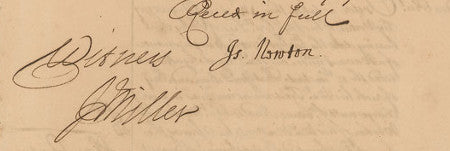 Recd in full
Witness Js. Newton.
J Miller